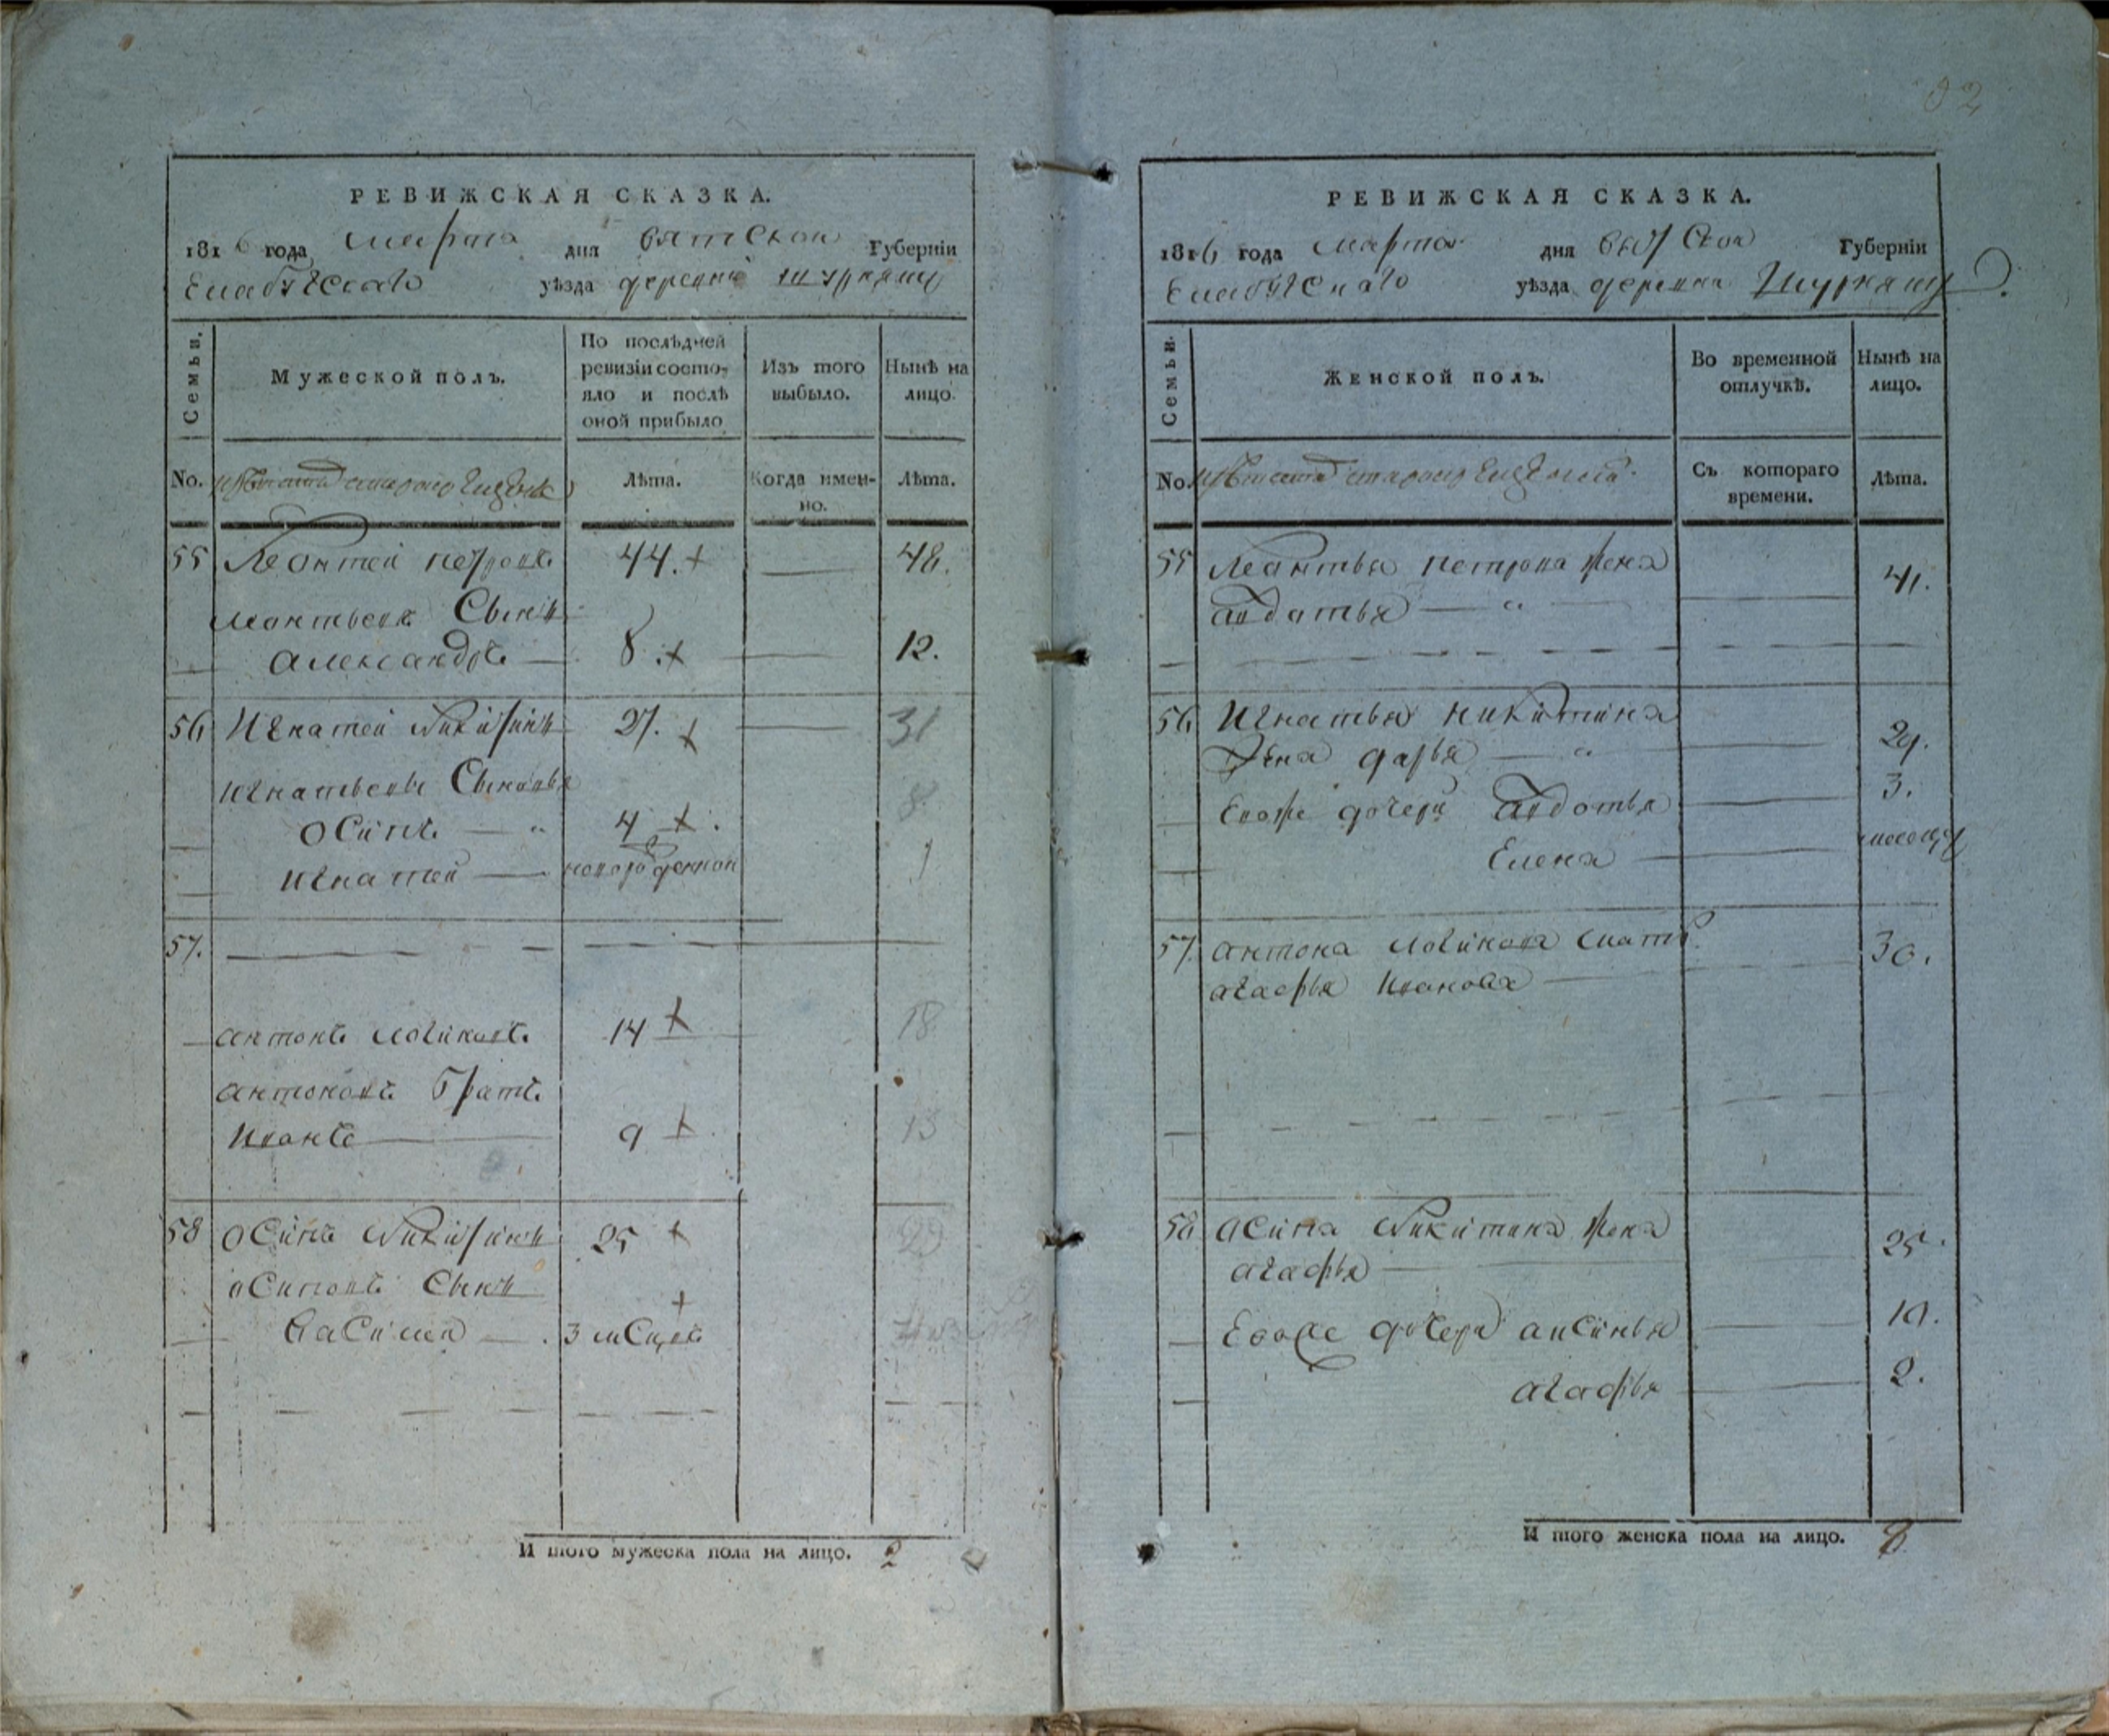 РЕВИЖСКАЯ СКАЗКА.
1816 года марта дня вятской Губерніи
Елабугскаго уѣзда деревни Шурняку
Семьи.
Мужеской полъ.
По послѣдней
ревизіи состо-
яло и послѣ
оной прибыло
Изъ того
выбыло.
Нынѣ на
лицо.
No.
Лѣта.
Когда имен-
но.
Лѣта.
55 Леонтей петровъ 44. 48.
леонтьевъ Сынъ
александръ 8. 12.
56 Игнатей Никитинъ 27. 31
игнатьевы Сыновья
осипъ 4 8
игнатей новорожденной 1
57.
антонъ логиновъ 14 18
антоновъ братъ
иванъ 9 13
58 осипъ Никитинъ 25 29
осиповъ Сынъ
василей 3 мсцовъ
И того мужеска пола на лицо.
РЕВИЖСКАЯ СКАЗКА.
1816 года марта дня вятской Губерніи
Елабугскаго уѣзда деревни Шурняку
Семьи.
Женской полъ.
Во временной
отлучкѣ.
Нынѣ на
лицо.
No.
Съ котораго
времени.
Лѣта.
55 Леонтья петрова жена
авдотья 41.
56 Игнатья никитина
жена дарья 29.
Евоже дочери авдотья 3.
Елена
57. антона логинова мать
агафья иванова 30.
58 осипа Никитина жена
агафья 25
Евоже дочери аксинья 10.
агафья 2.
И того женска пола на лицо. 8